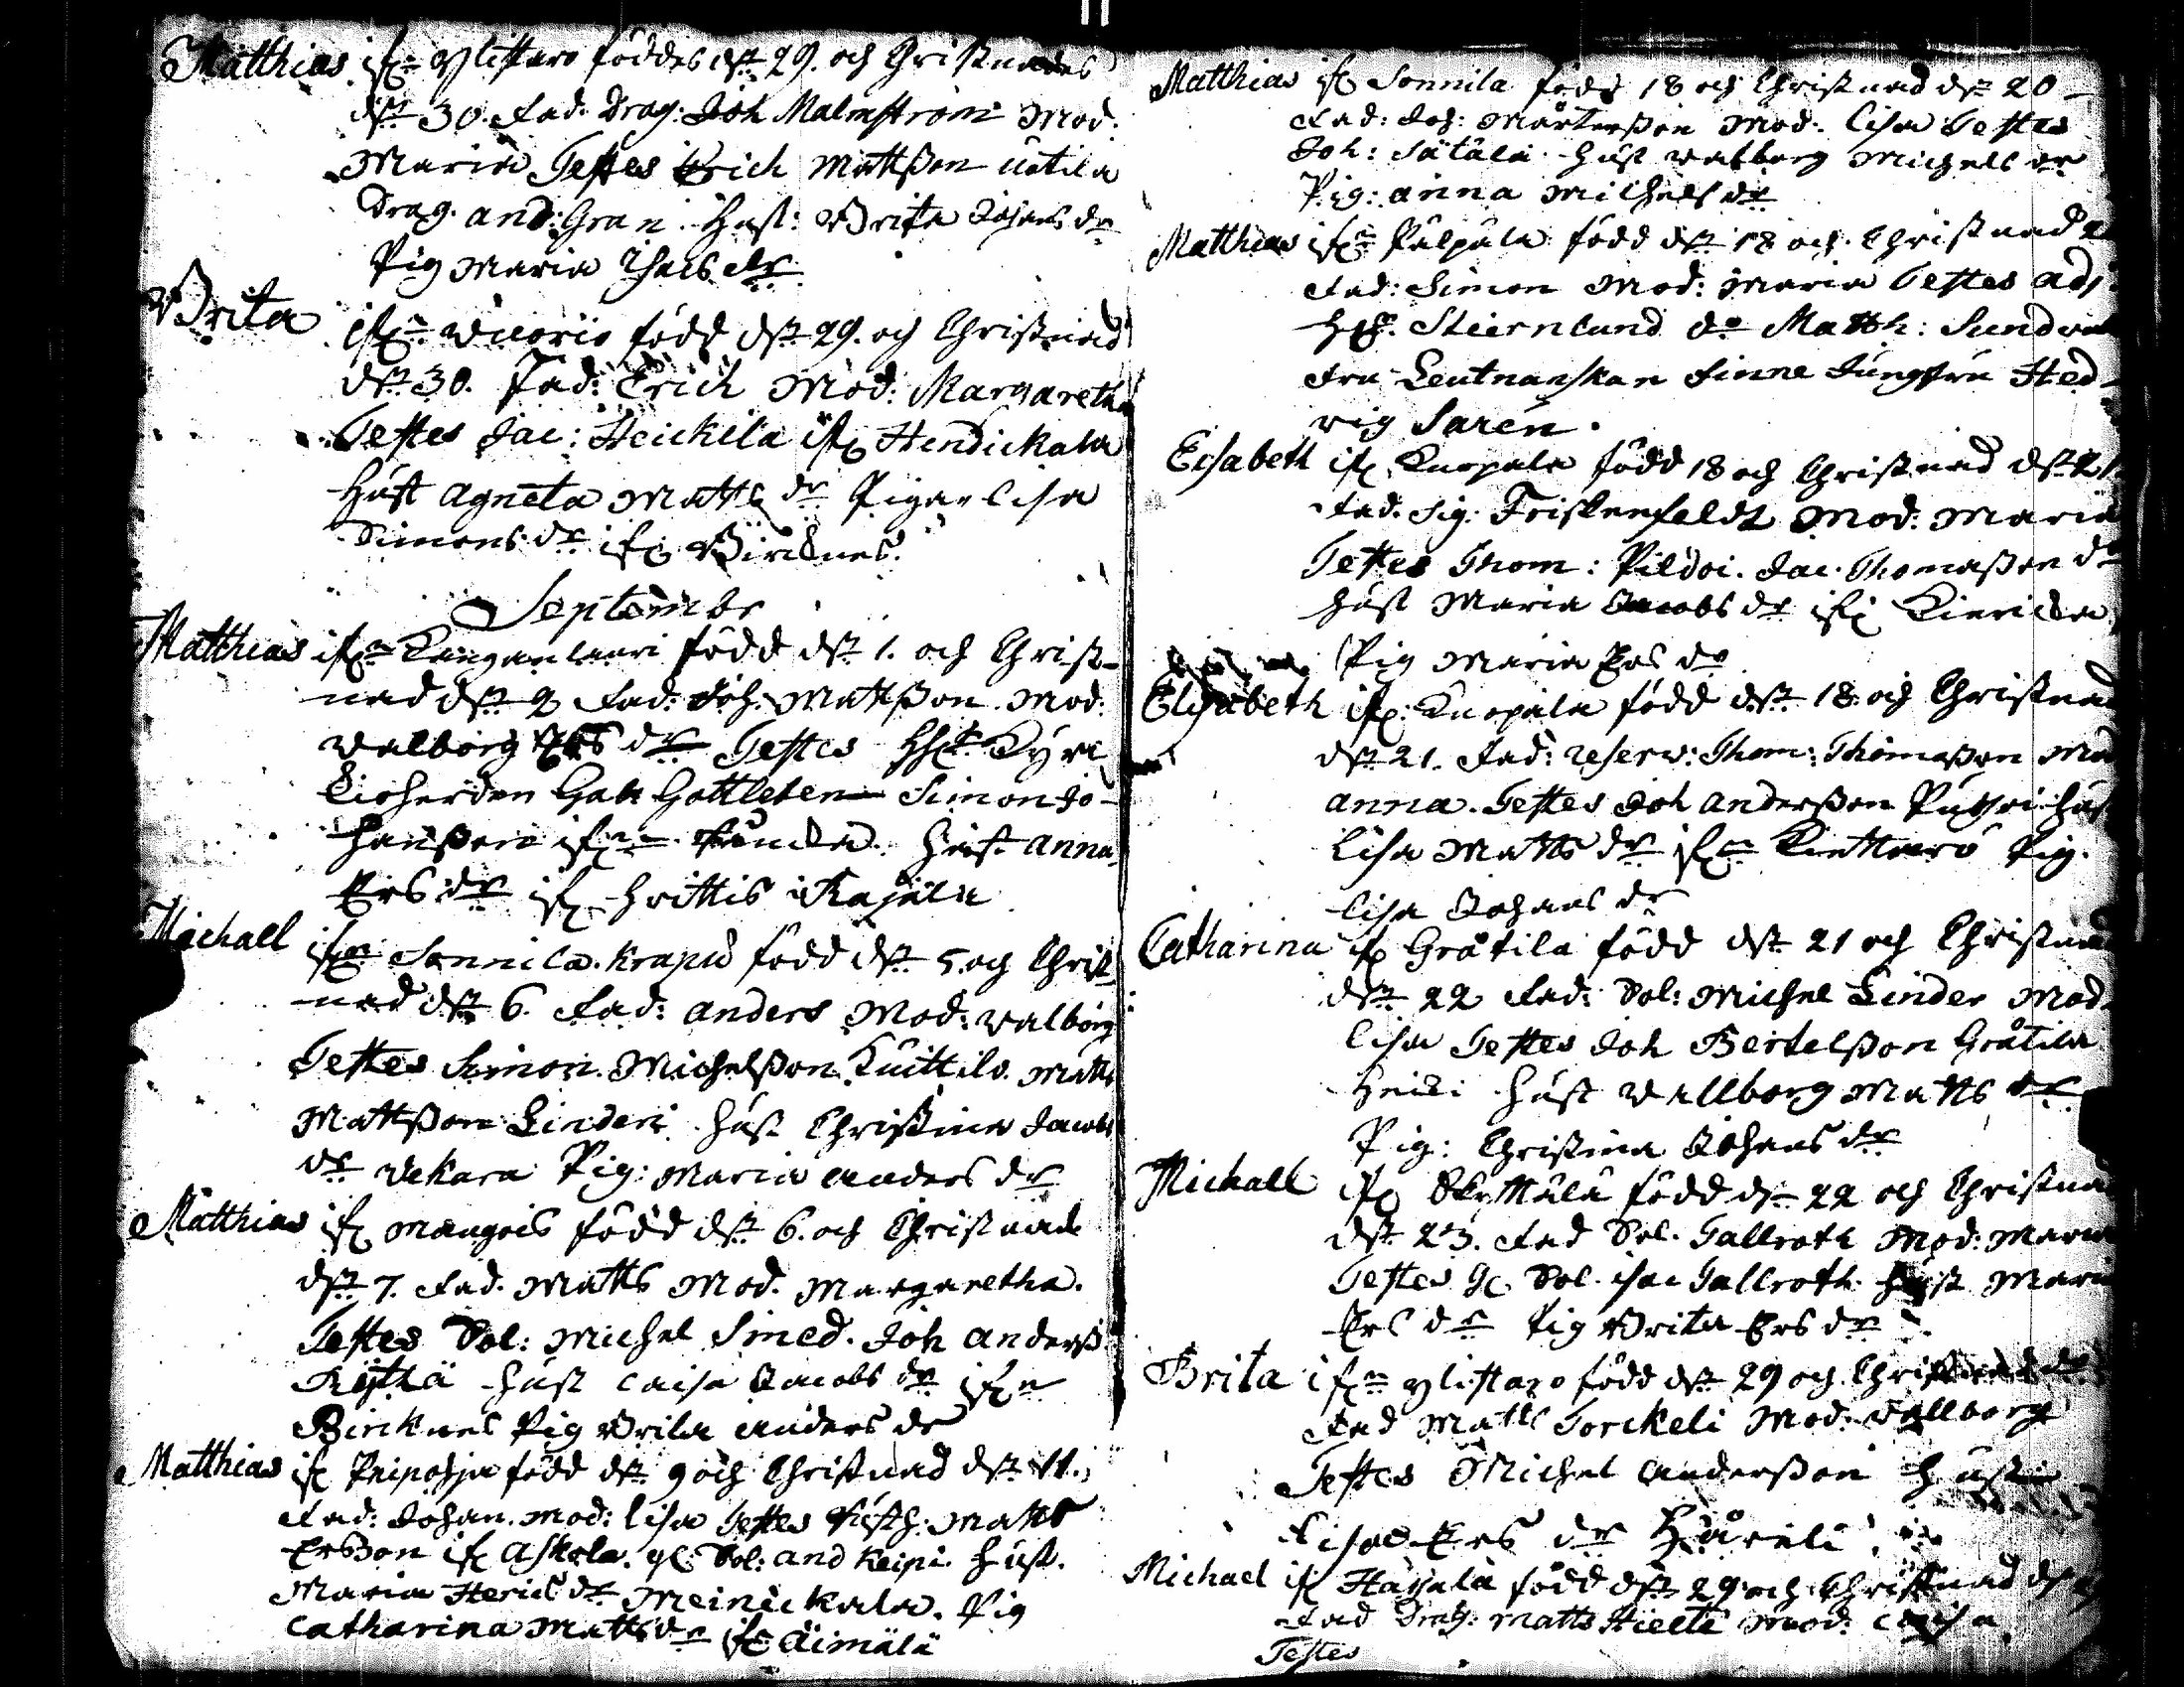 Matthias ifr: ylistaro föddes dn 29. och Christnades
dn 30. Fad: Drag: Joh Malmström Mod:
Maria Testes Erich Mattsson Uotila
Drag. And: Gran. Hust: Brita Johans dr
Pig Maria Thoms dr
Brita ifrn Wuorio född dn 29. och Christnad
dn 30. Fad: Erich Mod: Margaretha
Testes Jac: Heickilä ifr Hendickala
Hust Agneta Matts dr Pigan Lisa
Simons dr ifr Bircknes.
Septembr
Matthias ifrn född dn 1. och Christ-
nad dn 2 Fad: Joh: Mattsson Mod:
Walborg Ers dr Testes Kyrc
Lisherden Gabr Gottleben Simon Jo-
hansson ifrn Hust Anna
Ers dr ifr Hvittis Rajala
Michaell ifrn Sonnila Krapu född dn 5. och Christ
nad dn 6. Fad: Anders Mod: Walborg
Testes Simon Michelsson Kuittilo Matts
Mattsson Linderi Hust Christina Jacobs
dr Wekara Pig: Maria Anders dr
Matthias ifr Maugois född dn 6. och Christnade
dn 7. Fad. Matts Mod. Margaretha.
Testes Sol: Michel Smed. Joh Anderss.
Rythä Hust Caisa Jacobs dr ifrn
Bircknes Pig Brita Anders dr
Matthias ifr Pripohja född dn 9 och Christnad dn 11.
Fad: Johan. Mod: Lisa Testes Matts
Ersson ifr Askola. gl: Sol: And Keipi Hust.
Maria Henrics dr Meinickala. Pig
Catharina Matts dr ifr Äimälä
Matthias ifr Sonnila född 18 och Christnad dn 20
Fad: Joh: Mårtensson Mod: Lisa Testes
Joh: Sätälä Hust Walborg Michels dr
Pig: Anna Michels dr
Matthias ifrn Pälpälä född dn 18 och Christnad 2
Fad: Simon Mod: Maria Testes Adj
Hr Stiernlund do Matth: Sundwal
Fru Leutnanskan Finne Jungfru Hed-
vig Saren.
Elisabeth ifr Kuopala född 18 och Christnad dn 21.
Fad. Sig: Friskenfeldt Mod: Maria
Testes Thom: Pildoi. Jac. Thomasson do
Hust Maria Jacobs dr ifr
Pig Maria Ers dr
Elisabeth ifr: Kuopala född dn 18 och Christnad
dn 21. Fad: reserv: Thom: Thomasson Mod
Anna. Testes Joh Andersson Hust
Lisa Matts dr ifrn Pig.
Lisa Johans dr
Catharina ifr Gråtila född dn 21 och Christnad
dn 22 Fad: Sol: Michel Linder Mod.
Lisa Testes Joh Bertelsson Gråtila
Heicki Hust Wallborg Matts dr
Pig: Christina Johans dr
Michaell ifr Skyttälä född dn 22 och Christnad
dn 23. Fad Sol. Tallroth Mod: Maria
Testes gl. Sol. Isac Tallroth Hust Maria
Ers dr Pig Brita Ers dr
Brita ifrn ylistaro född dn 29 och Christnad
Fad Matts Torckeli Mod: Wallborg
Testes Michel Andersson Hust
Lisa Ers dr
Michael ifr född dn 29 och Christnad dn
Fad Drag: Matts Hielte Mod: Caisa.
Testes